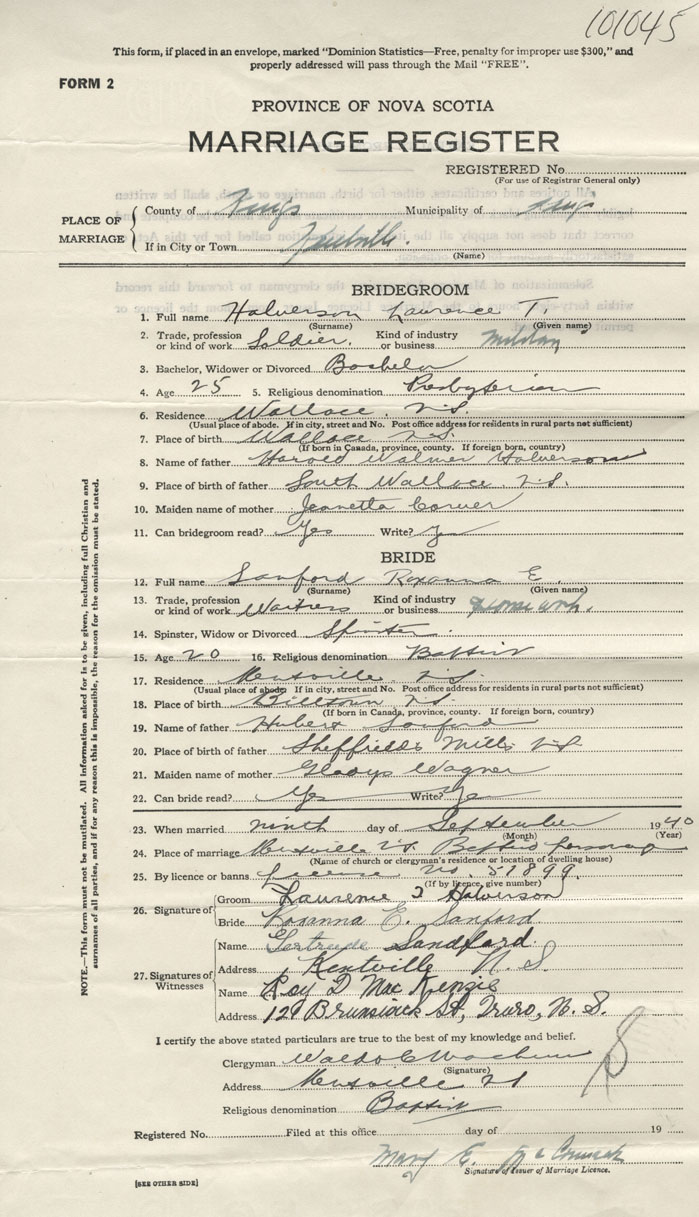 101045
This form, if placed in an envelope, marked "Dominion Statistics—Free, penalty for improper use $300," and
properly addressed will pass through the Mail "FREE".
FORM 2
PROVINCE OF NOVA SCOTIA
MARRIAGE REGISTER
REGISTERED No.
(For use of Registrar General only)
PLACE OF MARRIAGE
County of Kings Municipality of Kings
If in City or Town Kentville.
(Name)
BRIDEGROOM
1. Full name Halverson Laurence T.
(Surname) (Given name)
2. Trade, profession or kind of work Soldier. Kind of industry or business Military
3. Bachelor, Widower or Divorced Bachelor
4. Age 25 5. Religious denomination Presbyterian
6. Residence Wallace. N.S.
(Usual place of abode. If in city, street and No. Post office address for residents in rural parts not sufficient)
7. Place of birth Wallace N.S.
(If born in Canada, province, county. If foreign born, country)
8. Name of father Harold Walner Halverson
9. Place of birth of father South Wallace N.S.
10. Maiden name of mother Jeanetta
11. Can bridegroom read? Yes Write? Yes
BRIDE
12. Full name Sanford Roxanna E.
(Surname) (Given name)
13. Trade, profession or kind of work Waitress Kind of industry or business
14. Spinster, Widow or Divorced Spinster.
15. Age 20 16. Religious denomination Baptist
17. Residence Kentville N.S.
(Usual place of abode. If in city, street and No. Post office address for residents in rural parts not sufficient)
18. Place of birth Billtown N.S.
(If born in Canada, province, county. If foreign born, country)
19. Name of father Hubert Sanford
20. Place of birth of father Sheffields Mills N.S.
21. Maiden name of mother Gladys Wagner
22. Can bride read? Yes Write? Yes
23. When married ninth day of September 1940
(Month) (Year)
24. Place of marriage Kentville N.S. Baptist Parsonage
(Name of church or clergyman's residence or location of dwelling house)
25. By licence or banns License no. 51899.
(If by licence, give number)
26. Signature of Groom Laurence T Halverson
Bride Roxanna E. Sanford
27. Signatures of Witnesses
Name Gertrude Sandford.
Address Kentville N.S.
Name Roy D MacKenzie
Address 129 Brunswick St, Truro, N.S.
I certify the above stated particulars are true to the best of my knowledge and belief.
Clergyman Waldo C Machum
(Signature)
Address Kentville N.S.
Religious denomination Baptist
Registered No. Filed at this office day of 19
Mary E. McCormack
Signature of Issuer of Marriage Licence.
[SEE OTHER SIDE]
NOTE.—This form must not be mutilated. All information asked for is to be given, including full Christian and
surnames of all parties, and if for any reason this is impossible, the reason for the omission must be stated.